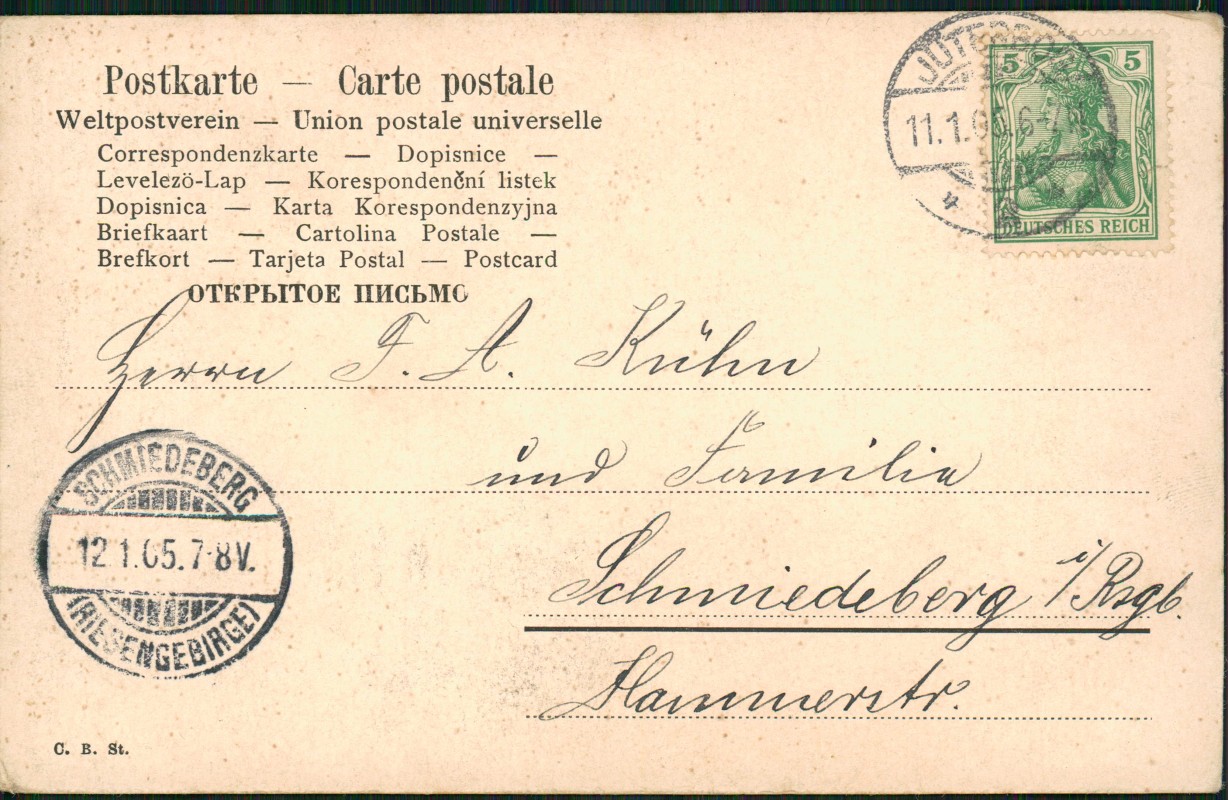 Postkarte — Carte postale
Weltpostverein — Union postale universelle
Correspondenzkarte — Dopisnice —
Levelezö-Lap — Korespondenční listek
Dopisnica — Karta Korespondenzyjna
Briefkaart — Cartolina Postale —
Brefkort — Tarjeta Postal — Postcard
ОТКРЫТОЕ ПИСЬМО
5 5
DEUTSCHES REICH
11.1.
Herrn F. A. Kühn
und Familie
Schmiedeberg i/Rsgb.
Hammerstr.
SCHMIEDEBERG
12.1.05.7-8V.
(RIESENGEBIRGE)
C. B. St.